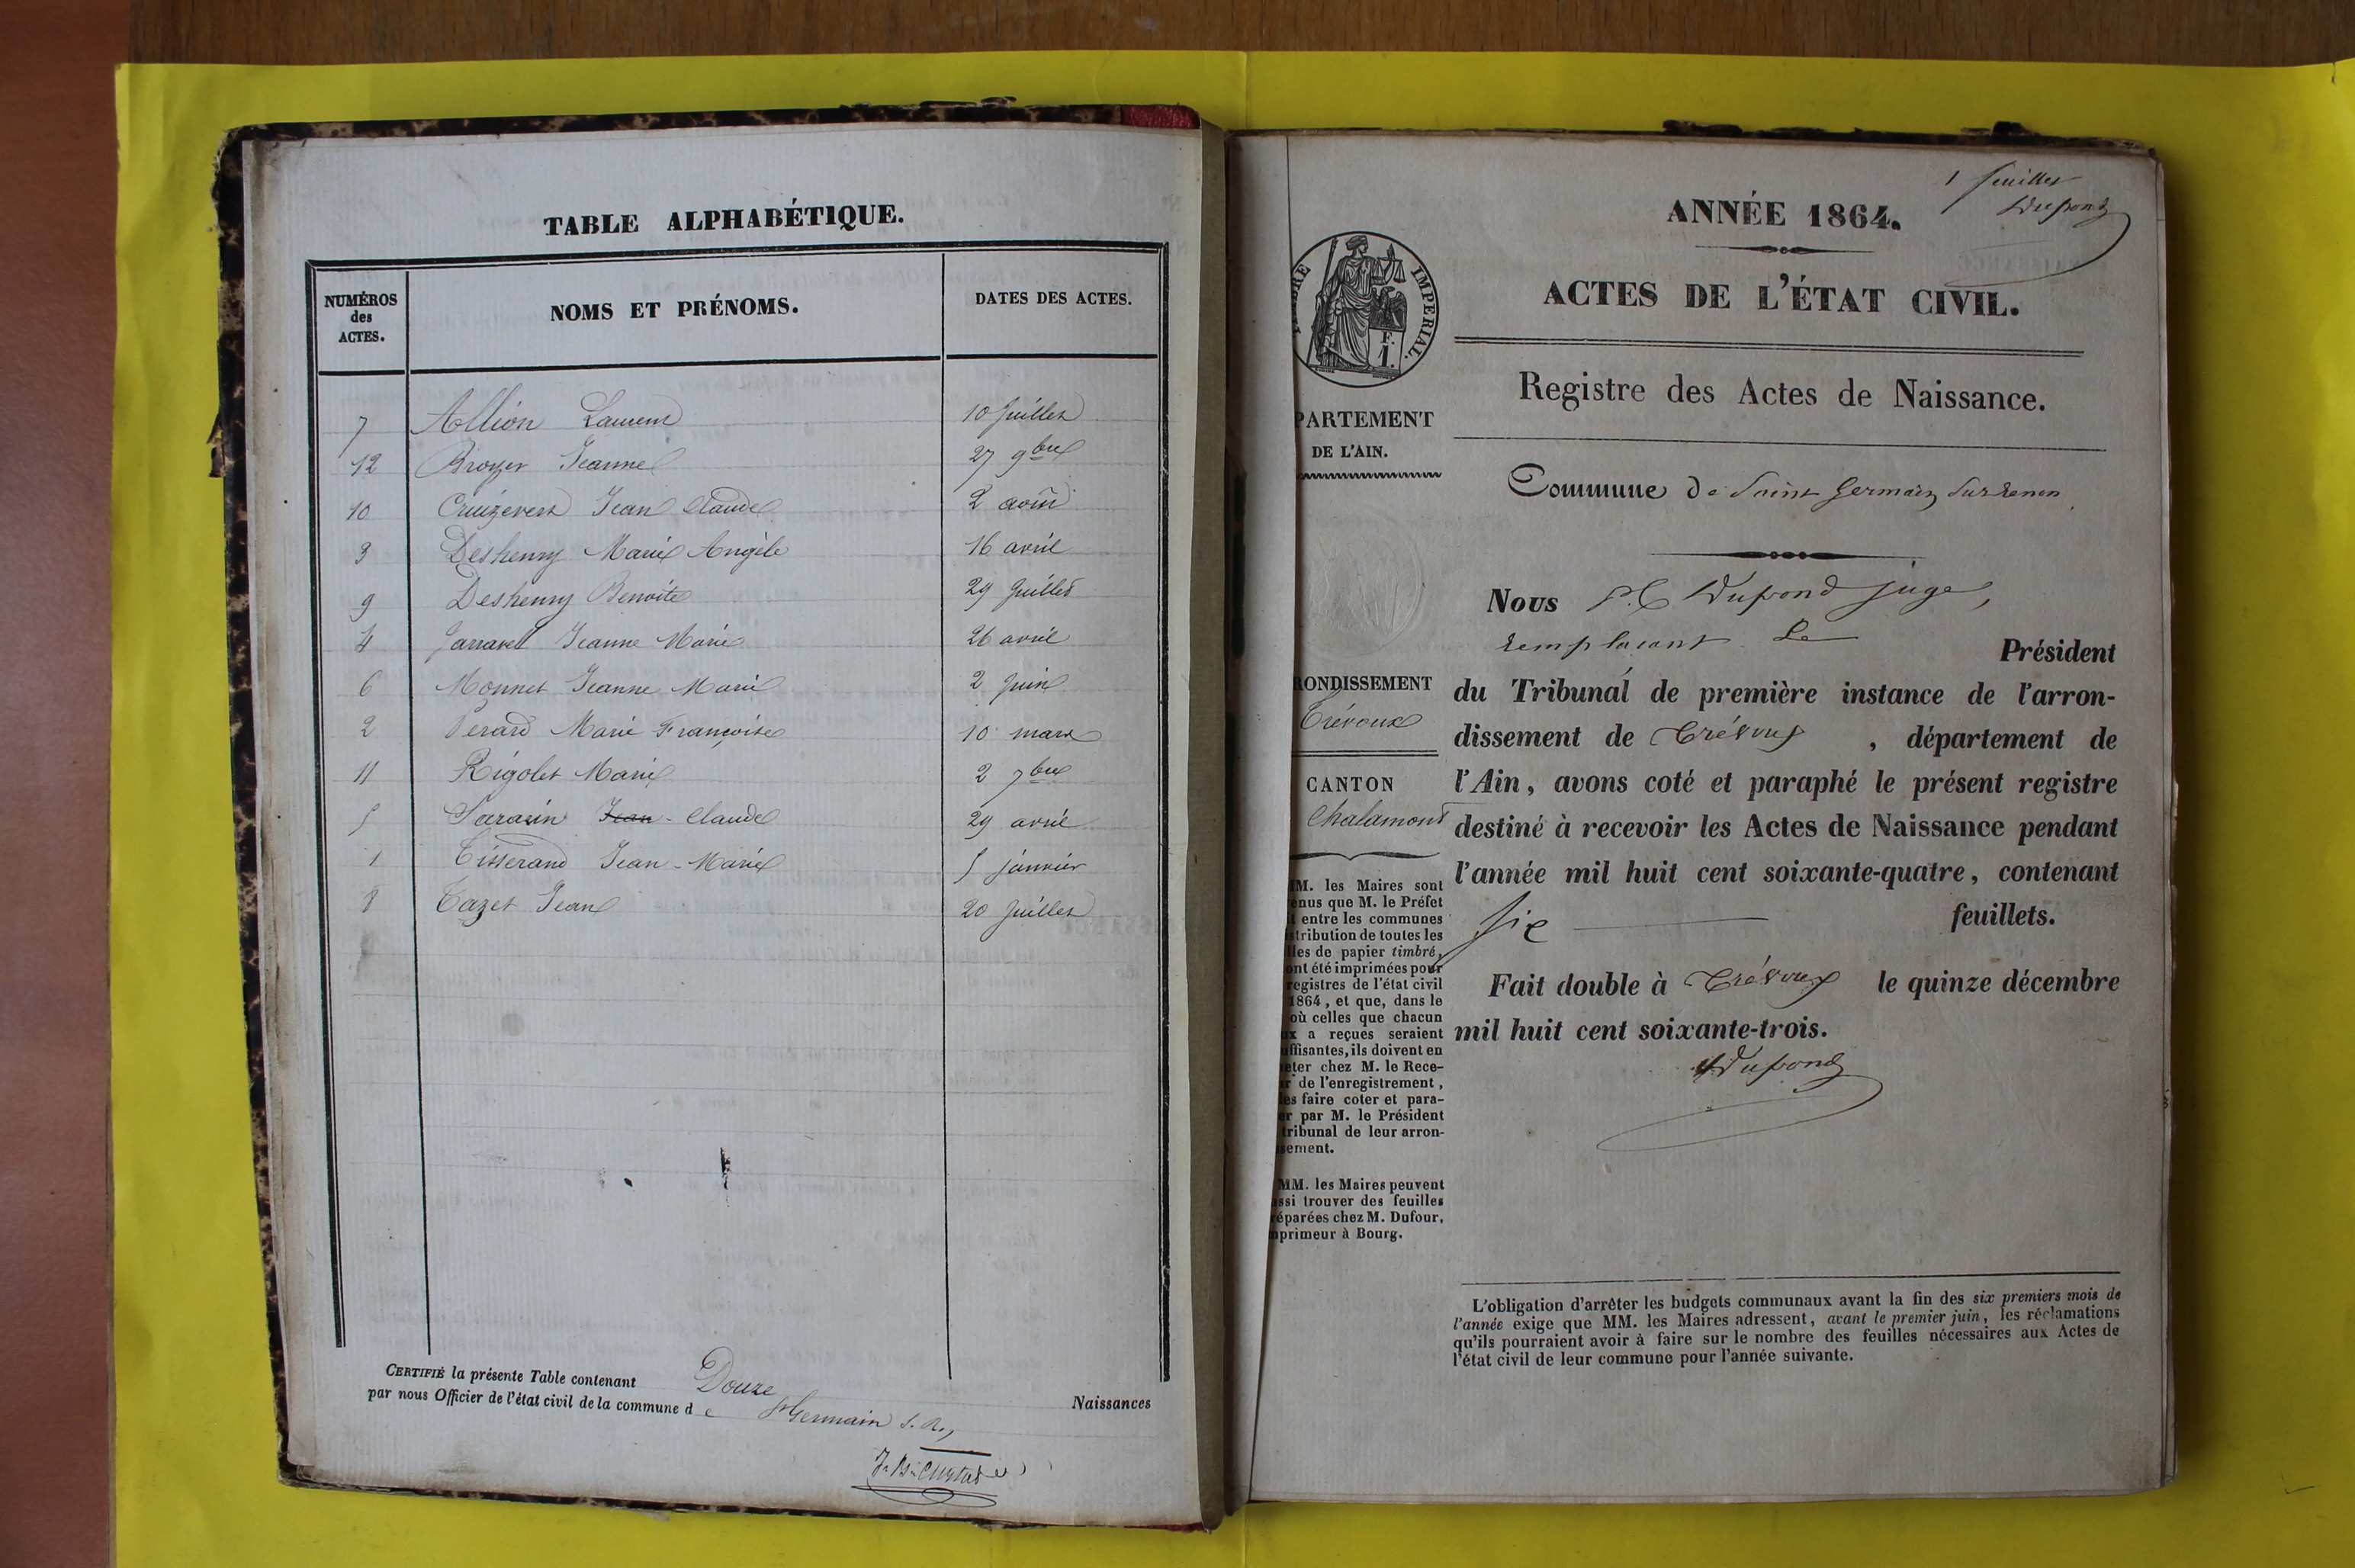 TABLE ALPHABÉTIQUE.
NUMÉROS des ACTES. NOMS ET PRÉNOMS. DATES DES ACTES.
7 Allion Laurent 10 Juillet
12 Broyer Jeanne 27 9bre
10 Cruizevert Jean Claude 2 août
3 Deshenry Marie Angèle 16 avril
9 Deshenry Benoite 29 Juillet
4 Jarravet Jeanne Marie 26 avril
6 Monnet Jeanne Marie 2 Juin
2 Perard Marie Françoise 10 mars
11 Rigolet Marie 2 7bre
5 Sarasin Jean - Claude 29 avril
1 Tisserand Jean-Marie 5 janvier
8 Tazet Jean 20 Juillet
CERTIFIÉ la présente Table contenant Douze Naissances
par nous Officier de l'état civil de la commune de St Germain s. R.,
1 feuillet
Dupond
ANNÉE 1864.
ACTES DE L'ÉTAT CIVIL.
Registre des Actes de Naissance.
Commune de Saint Germain sur Renon
Nous Dupond juge,
remplaçant Le Président
du Tribunal de première instance de l'arron-
dissement de Trévoux, département de
l'Ain, avons coté et paraphé le présent registre
destiné à recevoir les Actes de Naissance pendant
l'année mil huit cent soixante-quatre, contenant
six feuillets.
Fait double à Trévoux le quinze décembre
mil huit cent soixante-trois.
Dupond
L'obligation d'arrêter les budgets communaux avant la fin des six premiers mois de
l'année exige que MM. les Maires adressent, avant le premier juin, les réclamations
qu'ils pourraient avoir à faire sur le nombre des feuilles nécessaires aux Actes de
l'état civil de leur commune pour l'année suivante.
IMPERIAL.
F.
1.
PARTEMENT
DE L'AIN.
RONDISSEMENT
Trévoux
CANTON
Chalamont
M. les Maires sont
enus que M. le Préfet
t entre les communes
stribution de toutes les
lles de papier timbré,
ont été imprimées pour
registres de l'état civil
1864, et que, dans le
où celles que chacun
ux a reçues seraient
uffisantes, ils doivent en
eter chez M. le Rece-
r de l'enregistrement,
es faire coter et para-
er par M. le Président
tribunal de leur arron-
sement.
MM. les Maires peuvent
ssi trouver des feuilles
éparées chez M. Dufour,
mprimeur à Bourg.